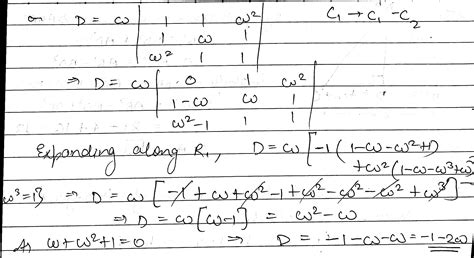 or D = ω | 1 1 ω² | C₁ → C₁ - C₂
| 1 ω 1 |
| ω² 1 1 |
⇒ D = ω | 0 1 ω² |
| 1-ω ω 1 |
| ω²-1 1 1 |
Expanding along R₁, D = ω [ -1 ( 1-ω-ω²+1)
+ω² (1-ω-ω³+ω
ω³=1} ⇒ D = ω [ -1+ω+ω²-1+ω²-ω²-ω²+ω³ ]
⇒ D = ω [ω-1] = ω²-ω
As ω+ω²+1=0 ⇒ D = -1-ω-ω = -1-2ω